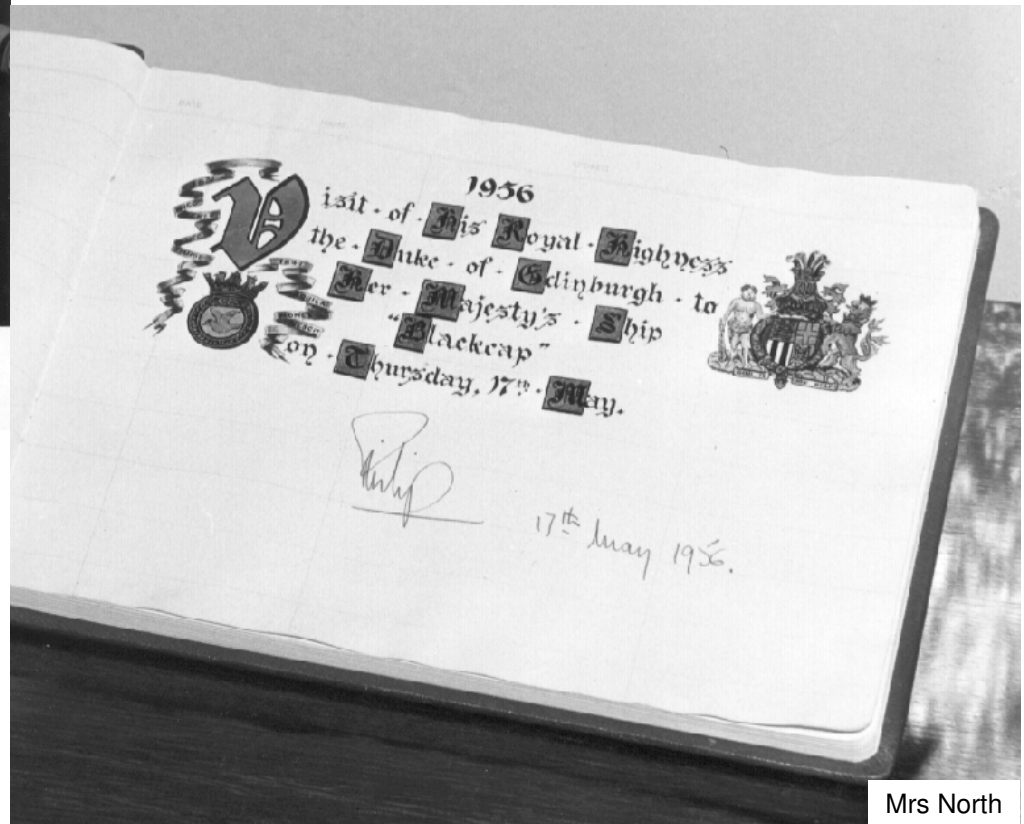 1956
Visit · of · His Royal · Highness
the · Duke · of · Edinburgh · to
Her · Majesty's · Ship
"Blackcap"
on · Thursday, 17th · May.
Philip
17th May 1956.
Mrs North